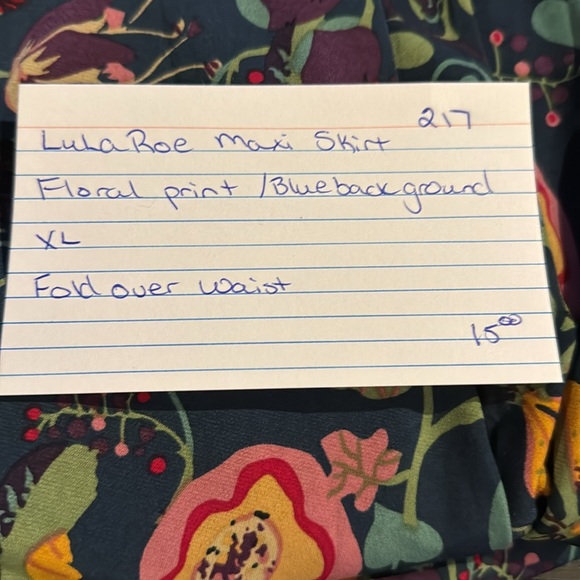 217
LuLaRoe Maxi Skirt
Floral print / Blue background
XL
Fold over waist
15⁰⁰